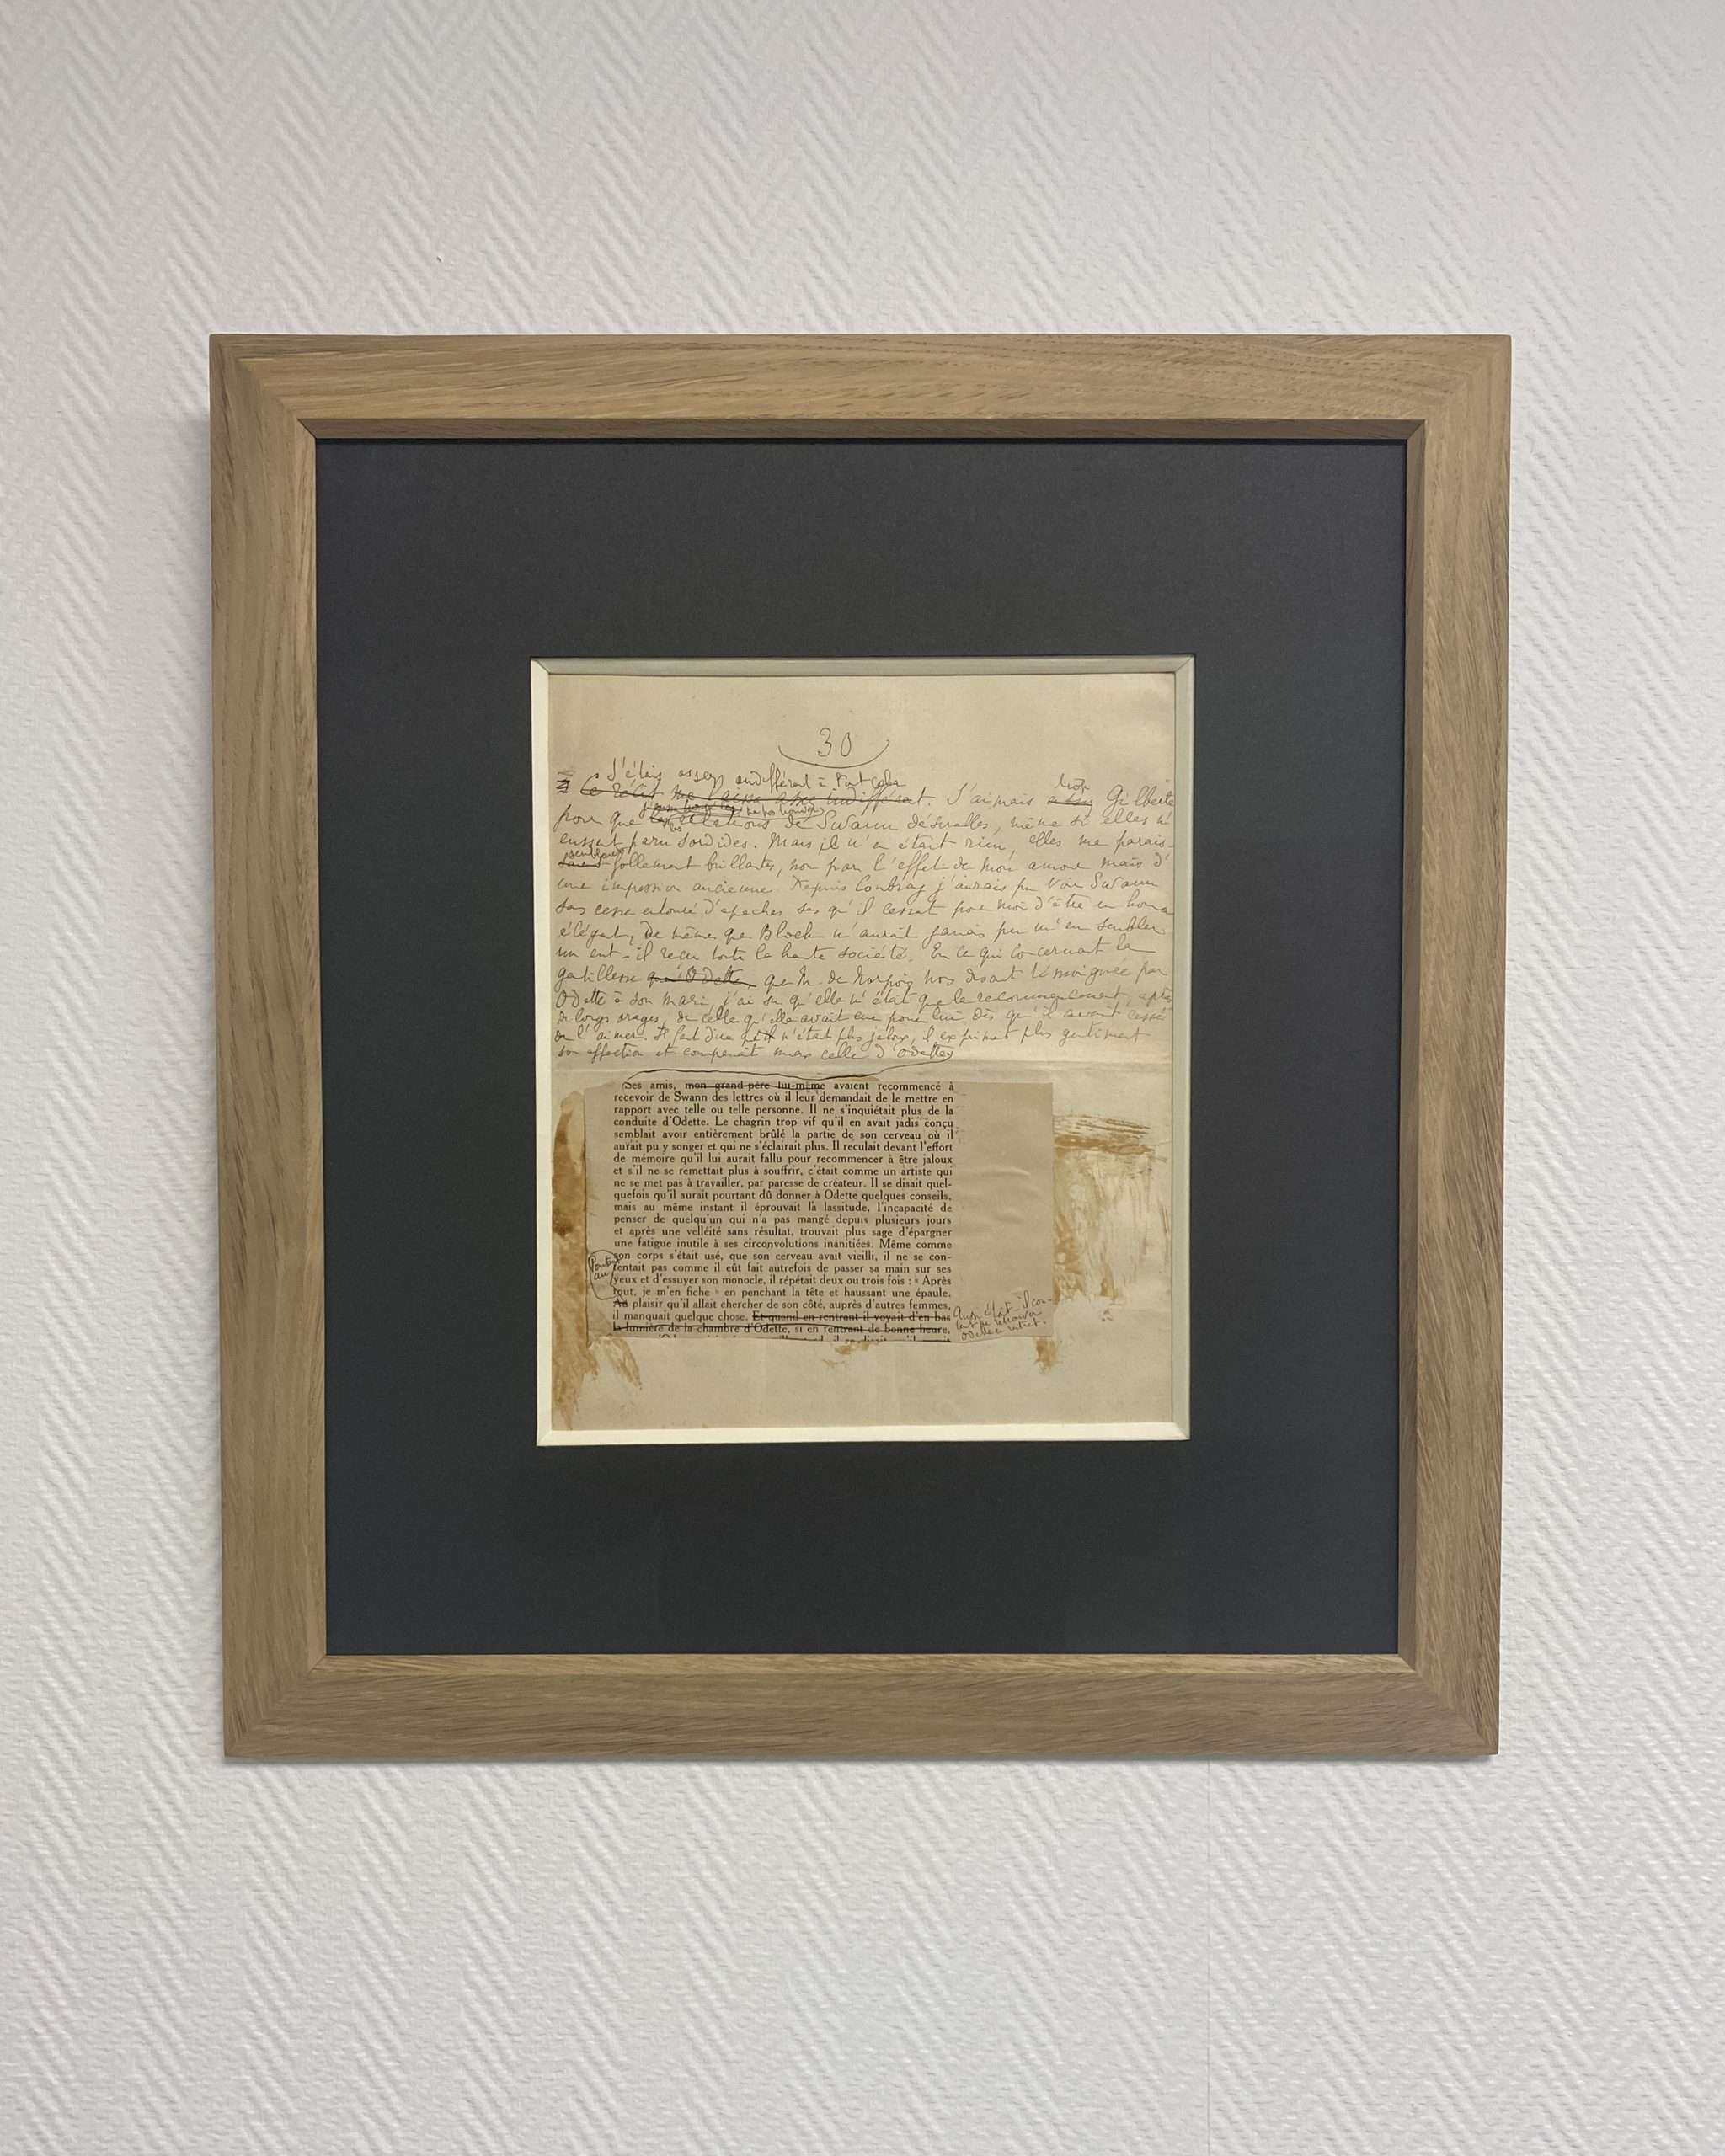 30
J'étais assez indifférent à tout cela
Ce récit me laissa assez indifférent. J'aimais trop Gilberte
pour que les relations de Swann désirables, même si elles n'
eussent paru sordides. Mais il n'en était rien, elles me parais-
saient follement brillantes, non par l'effet de mon amour mais d'
une impression ancienne. Depuis Combray j'aurais pu voir Swann
sans cesse entouré d'apaches sans qu'il cessât pour moi d'être un homme
élégant, de même que Bloch n'aurait jamais pu m'en sembler
un eut-il reçu toute la haute société. En ce qui concernait la
gentillesse qu'Odette, que M. de Norpois nous disait témoignée par
Odette à son mari, j'ai su qu'elle n'était que le recommencement, après
de longs orages, de celle qu'elle avait eue pour lui dès qu'il avait cessé
de l'aimer. Il faut dire qu'il n'était plus jaloux, il exprimait plus gentiment
son affection et comprenait mieux celle d'Odette
Ses amis, mon grand-père lui-même avaient recommencé à
recevoir de Swann des lettres où il leur demandait de le mettre en
rapport avec telle ou telle personne. Il ne s'inquiétait plus de la
conduite d'Odette. Le chagrin trop vif qu'il en avait jadis conçu
semblait avoir entièrement brûlé la partie de son cerveau où il
aurait pu y songer et qui ne s'éclairait plus. Il reculait devant l'effort
de mémoire qu'il lui aurait fallu pour recommencer à être jaloux
et s'il ne se remettait plus à souffrir, c'était comme un artiste qui
ne se met pas à travailler, par paresse de créateur. Il se disait quel-
quefois qu'il aurait pourtant dû donner à Odette quelques conseils,
mais au même instant il éprouvait la lassitude, l'incapacité de
penser de quelqu'un qui n'a pas mangé depuis plusieurs jours
et après une velléité sans résultat, trouvait plus sage d'épargner
une fatigue inutile à ses circonvolutions inanitiées. Même comme
son corps s'était usé, que son cerveau avait vieilli, il ne se con-
tentait pas comme il eût fait autrefois de passer sa main sur ses
yeux et d'essuyer son monocle, il répétait deux ou trois fois : « Après
tout, je m'en fiche » en penchant la tête et haussant une épaule.
Pourtant
au
Au plaisir qu'il allait chercher de son côté, auprès d'autres femmes,
il manquait quelque chose. Et quand en rentrant il voyait d'en bas
la lumière de la chambre d'Odette, si en rentrant de bonne heure,